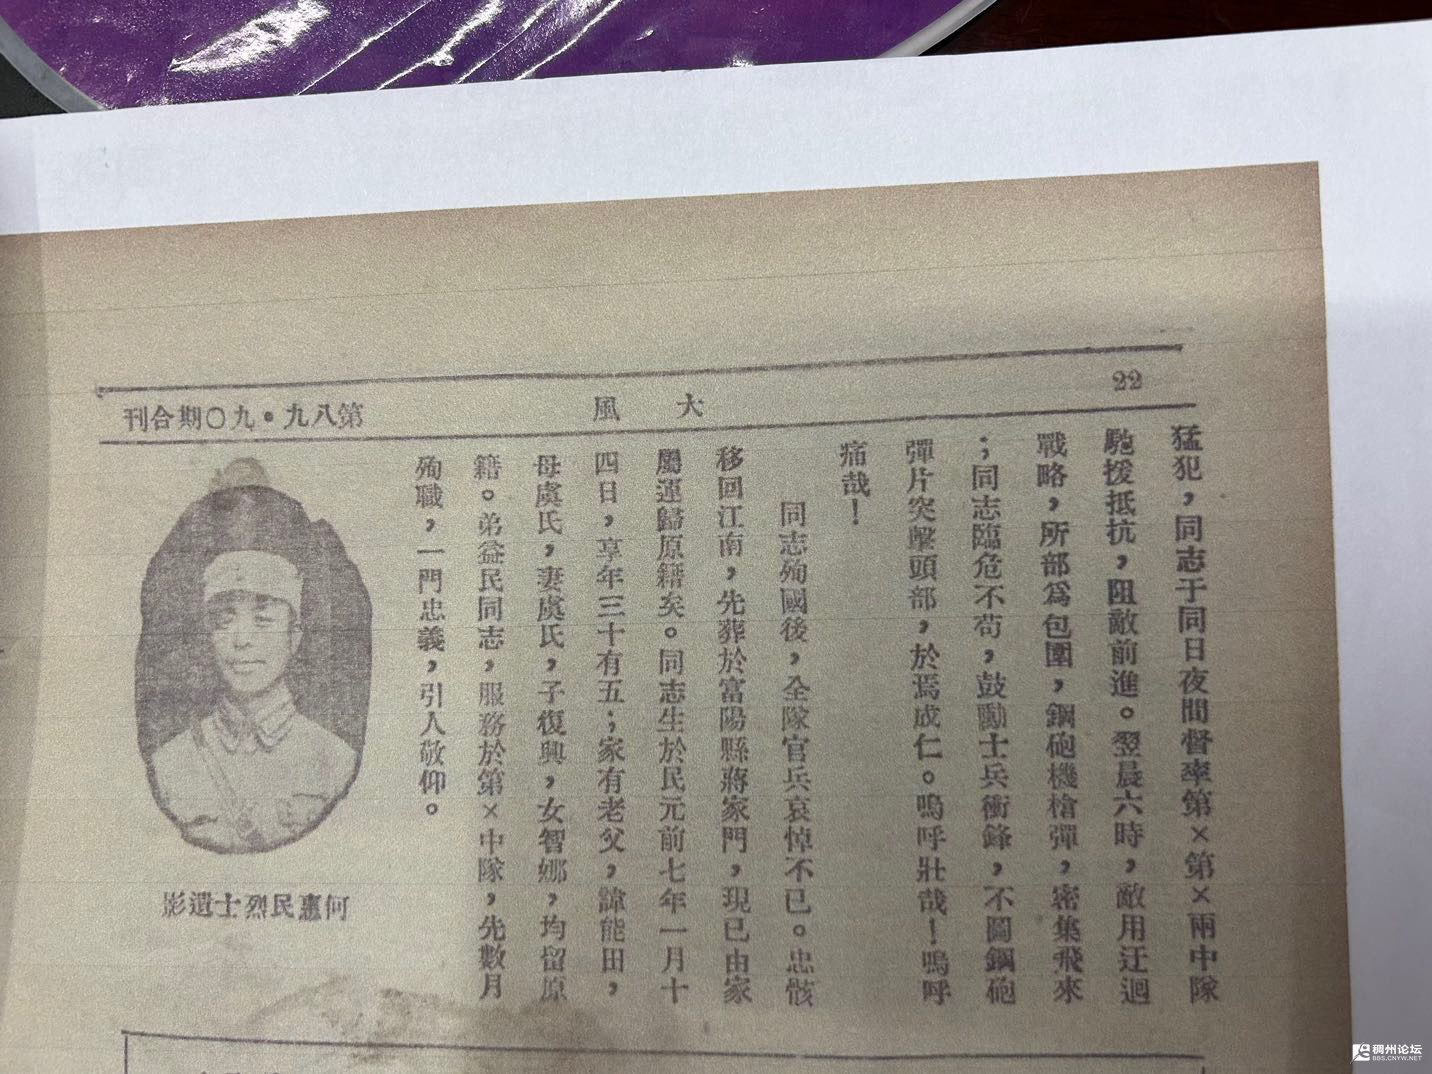 22
大風
第八九・九〇期合刊
猛犯，同志于同日夜間督率第×第×兩中隊
馳援抵抗，阻敵前進。翌晨六時，敵用迂迴
戰略，所部爲包圍，鋼砲機槍彈，密集飛來
；同志臨危不苟，鼓勵士兵衝鋒，不圖鋼砲
彈片突擊頭部，於焉成仁。嗚呼壯哉！嗚呼
痛哉！
同志殉國後，全隊官兵哀悼不已。忠骸
移回江南，先葬於富陽縣蔣家門，現已由家
屬運歸原籍矣。同志生於民元前七年一月十
四日，享年三十有五；家有老父，諱能田，
母虞氏，妻虞氏，子復興，女智娜，均留原
籍。弟益民同志，服務於第×中隊，先數月
殉職，一門忠義，引人敬仰。
何惠民烈士遺影
稠州论坛
BBS.CNYW.NET